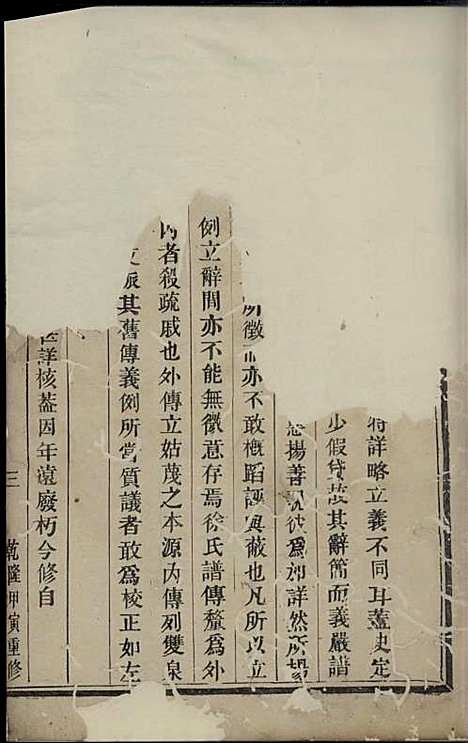 詳略立義不同耳蓋史定
少假貸故其辭簡而義嚴譜
揚善 彼為加詳然所
所徵 亦不敢槪蹈誣真蔽也凡所以立
例立辭間亦不能無微意存焉徐氏譜傳釐為外
內者殺疏戚也外傳立姑蔑之本源內傳列雙泉
派其舊傳義例所當質議者敢為校正如左
詳核葢因年遠廢朽今修自
三
乾隆甲寅重修